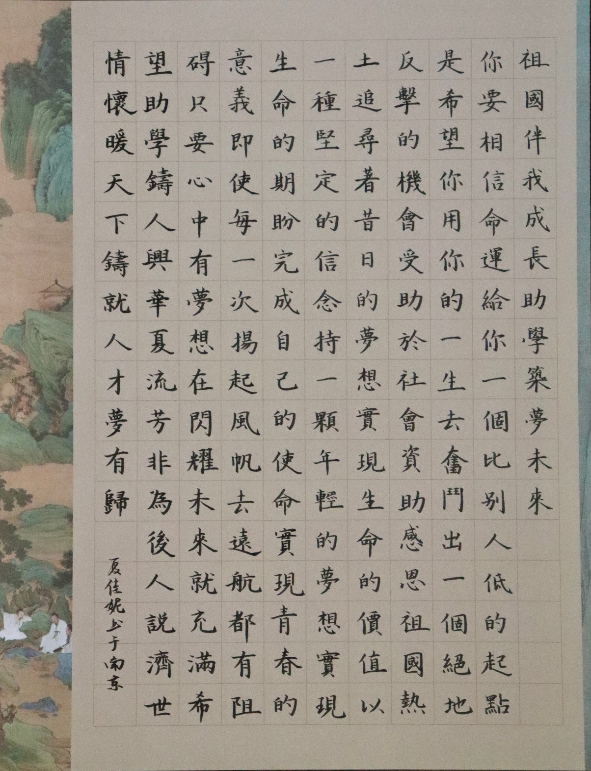 祖國伴我成長助學築夢未來
你要相信命運給你一個比别人低的起點
是希望你用你的一生去奮鬥出一個絕地
反擊的機會受助於社會資助感恩祖國熱
土追尋著昔日的夢想實現生命的價值以
一種堅定的信念持一顆年輕的夢想實現
生命的期盼完成自己的使命實現青春的
意義即使每一次揚起風帆去遠航都有阻
碍只要心中有夢想在閃耀未來就充滿希
望助學鑄人興華夏流芳非為後人説濟世
情懷暖天下鑄就人才夢有歸
夏佳妮書于南京